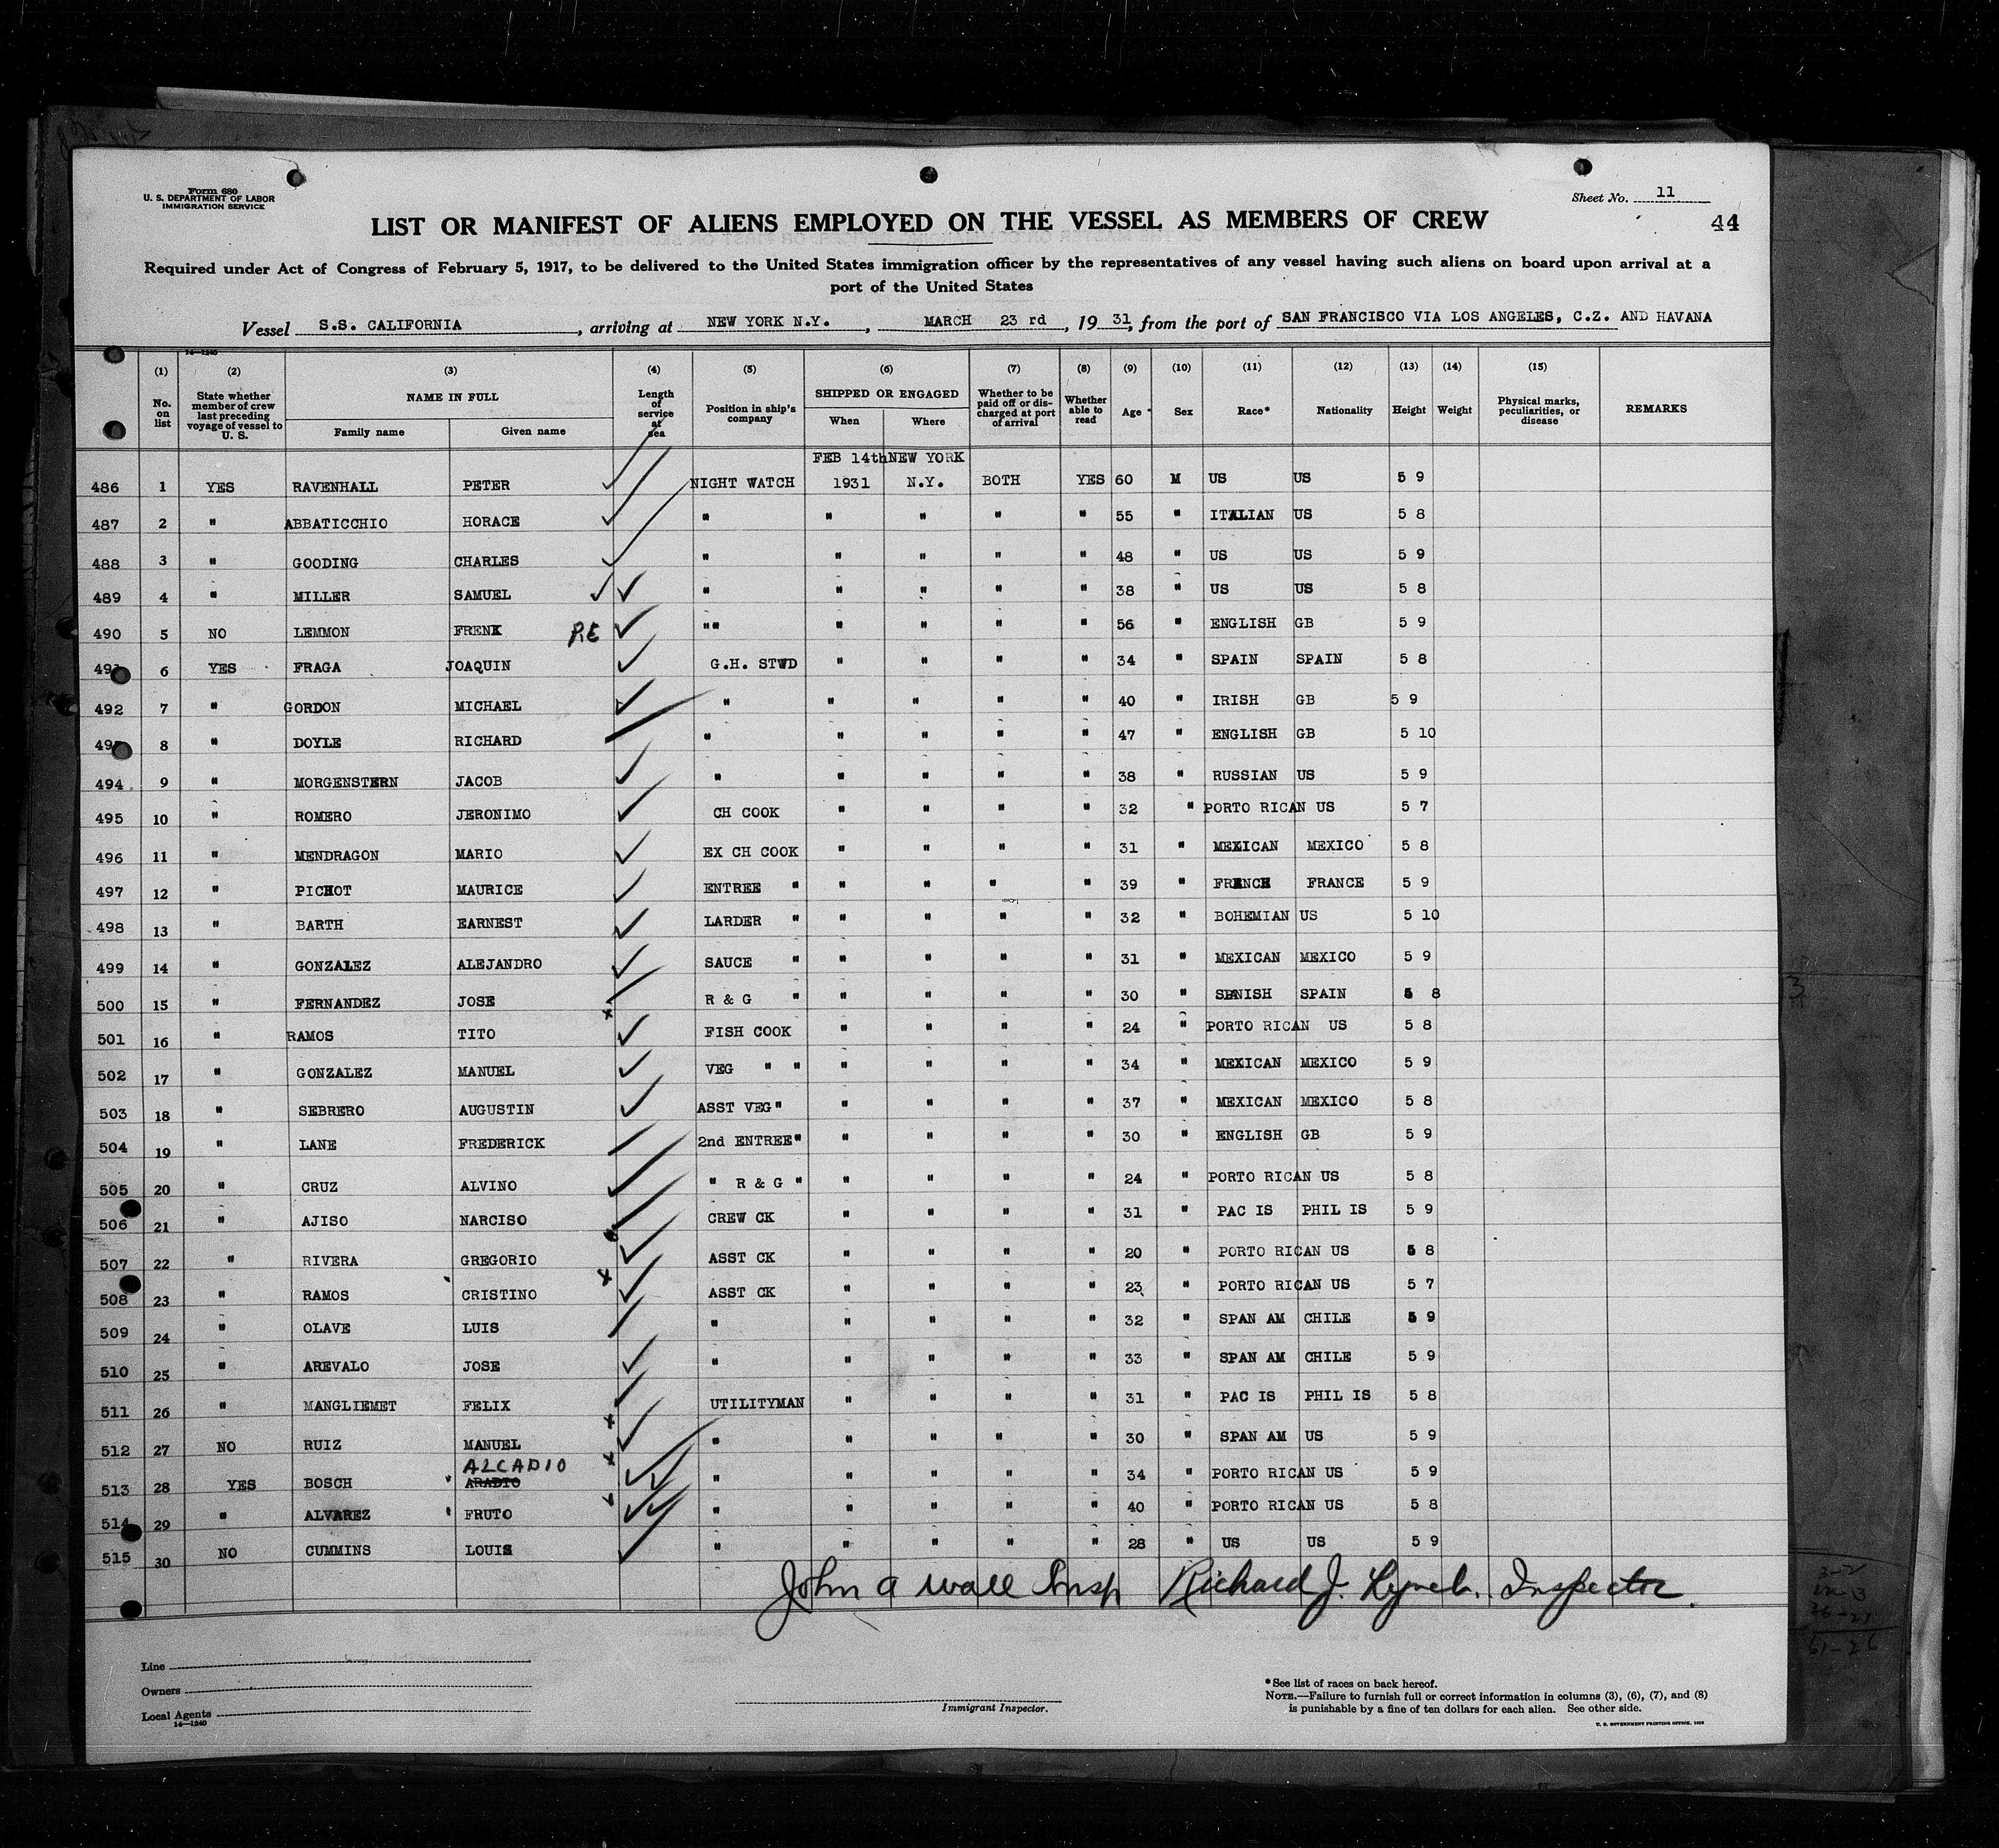 Form 680
U. S. DEPARTMENT OF LABOR
IMMIGRATION SERVICE
Sheet No. 11
44
LIST OR MANIFEST OF ALIENS EMPLOYED ON THE VESSEL AS MEMBERS OF CREW
Required under Act of Congress of February 5, 1917, to be delivered to the United States immigration officer by the representatives of any vessel having such aliens on board upon arrival at a
port of the United States
Vessel S.S. CALIFORNIA, arriving at NEW YORK N.Y., MARCH 23 rd, 19 31, from the port of SAN FRANCISCO VIA LOS ANGELES, C.Z. AND HAVANA
14—1240
(1) (2) (3) (4) (5) (6) (7) (8) (9) (10) (11) (12) (13) (14) (15)
No. on list State whether member of crew last preceding voyage of vessel to U. S. NAME IN FULL Family name Given name Length of service at sea Position in ship's company SHIPPED OR ENGAGED When Where Whether to be paid off or discharged at port of arrival Whether able to read Age Sex Race* Nationality Height Weight Physical marks, peculiarities, or disease REMARKS
FEB 14th NEW YORK
486 1 YES RAVENHALL PETER NIGHT WATCH 1931 N.Y. BOTH YES 60 M US US 5 9
487 2 " ABBATICCHIO HORACE " " " " " 55 " ITALIAN US 5 8
488 3 " GOODING CHARLES " " " " " 48 " US US 5 9
489 4 " MILLER SAMUEL " " " " " 38 " US US 5 8
490 5 NO LEMMON FRENK RE "" " " " " 56 " ENGLISH GB 5 9
491 6 YES FRAGA JOAQUIN G.H. STWD " " " " 34 " SPAIN SPAIN 5 8
492 7 " GORDON MICHAEL " " " " " 40 " IRISH GB 5 9
493 8 " DOYLE RICHARD " " " " " 47 " ENGLISH GB 5 10
494 9 " MORGENSTERN JACOB " " " " " 38 " RUSSIAN US 5 9
495 10 " ROMERO JERONIMO CH COOK " " " " 32 " PORTO RICAN US 5 7
496 11 " MENDRAGON MARIO EX CH COOK " " " " 31 " MEXICAN MEXICO 5 8
497 12 " PICHOT MAURICE ENTREE " " " " " 39 " FRENCH FRANCE 5 9
498 13 " BARTH EARNEST LARDER " " " " " 32 " BOHEMIAN US 5 10
499 14 " GONZALEZ ALEJANDRO SAUCE " " " " " 31 " MEXICAN MEXICO 5 9
500 15 " FERNANDEZ JOSE R & G " " " " " 30 " SPANISH SPAIN 5 8
501 16 " RAMOS TITO FISH COOK " " " " 24 " PORTO RICAN US 5 8
502 17 " GONZALEZ MANUEL VEG " " " " " " 34 " MEXICAN MEXICO 5 9
503 18 " SEBRERO AUGUSTIN ASST VEG " " " " " 37 " MEXICAN MEXICO 5 8
504 19 " LANE FREDERICK 2nd ENTREE " " " " " 30 " ENGLISH GB 5 9
505 20 " CRUZ ALVINO " R & G " " " " " 24 " PORTO RICAN US 5 8
506 21 " AJISO NARCISO CREW CK " " " " 31 " PAC IS PHIL IS 5 9
507 22 " RIVERA GREGORIO ASST CK " " " " 20 " PORTO RICAN US 5 8
508 23 " RAMOS CRISTINO ASST CK " " " " 23 " PORTO RICAN US 5 7
509 24 " OLAVE LUIS " " " " " 32 " SPAN AM CHILE 5 9
510 25 " AREVALO JOSE " " " " " 33 " SPAN AM CHILE 5 9
511 26 " MANGLIEMET FELIX UTILITYMAN " " " " 31 " PAC IS PHIL IS 5 8
512 27 NO RUIZ MANUEL " " " " " 30 " SPAN AM US 5 9
ALCADIO
513 28 YES BOSCH ARADIO " " " " " 34 " PORTO RICAN US 5 9
514 29 " ALVAREZ FRUTO " " " " " 40 " PORTO RICAN US 5 8
515 30 NO CUMMINS LOUIS " " " " " 28 " US US 5 9
John A Wall Insp Richard J. Lynch. Inspector.
Line
Owners
Local Agents
14—1240
Immigrant Inspector.
*See list of races on back hereof.
NOTE.—Failure to furnish full or correct information in columns (3), (6), (7), and (8)
is punishable by a fine of ten dollars for each alien. See other side.
U. S. GOVERNMENT PRINTING OFFICE